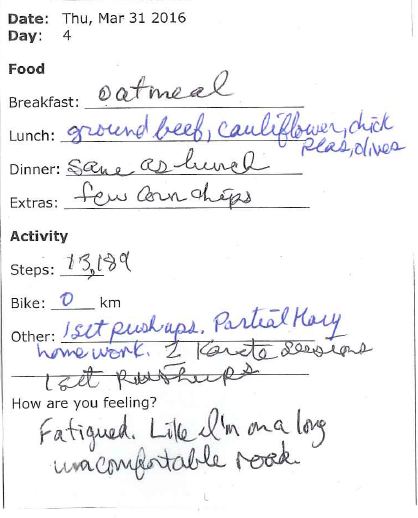 Date: Thu, Mar 31 2016
Day: 4
Food
Breakfast: oatmeal
Lunch: ground beef, cauliflower, chick
peas, olives
Dinner: same as lunch
Extras: few corn chips
Activity
Steps: 13,189
Bike: 0 km
Other: 1 set pushups. Partial Mary
homework. 2 Karate sessions
1 set Pushups
How are you feeling?
Fatigued. Like I'm on a long
uncomfortable road.